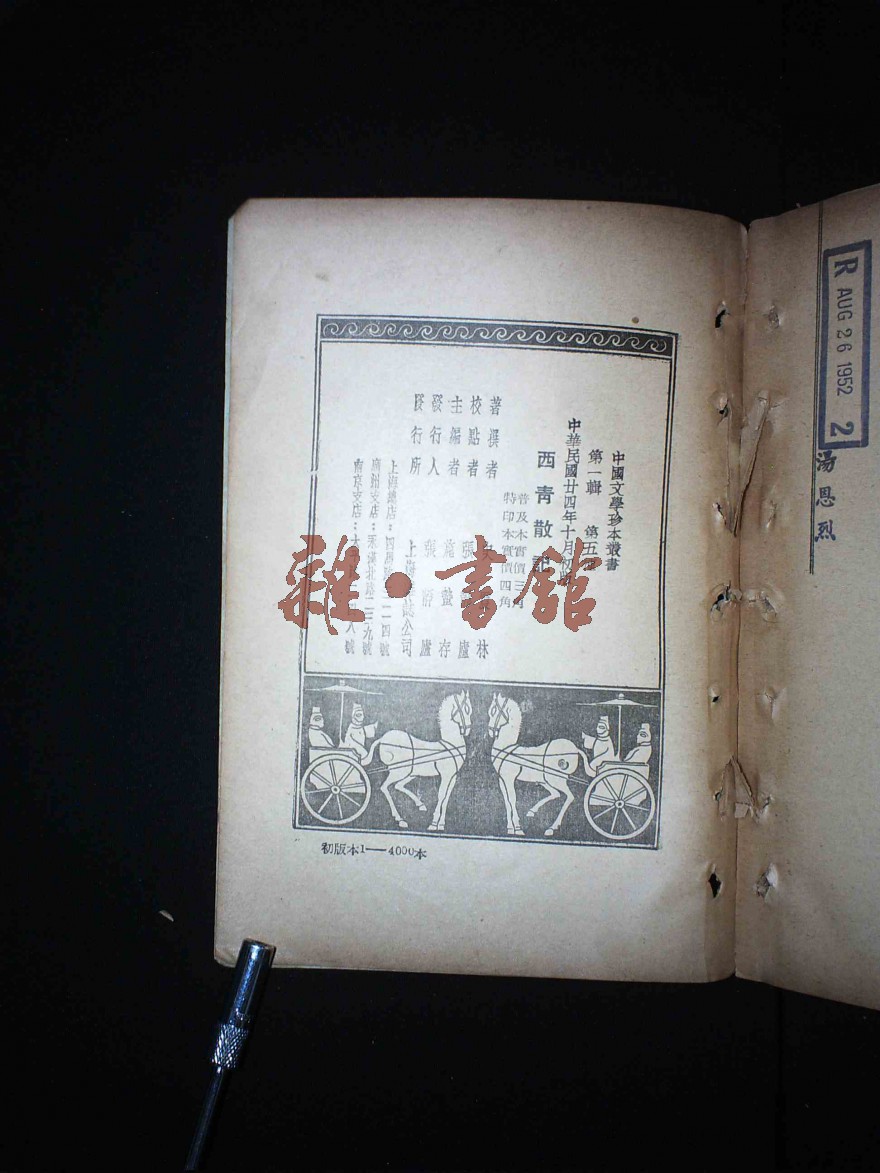 中國文學珍本叢書
第一輯 第五
中華民國廿四年十月初
西青散記
普及本實價三角
特印本實價四角
著撰者 林
校點者 張 廬
主編者 施蟄存
發行人 張靜廬
發行所 上海 誌公司
上海總店：四馬路 二四號
廣州支店：永漢北路二二九號
南京支店：太 八號
初版本1——4000本
雜·書館
R AUG 26 1952 2
湯恩烈